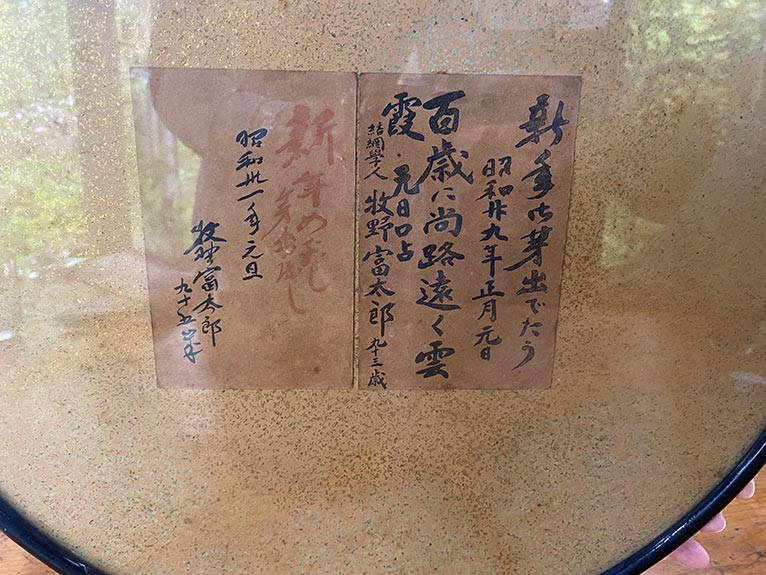 新年御芽出でたう
昭和廿九年正月元日
百歳に尚路遠く雲
霞 元日口占
結網學人 牧野富太郎 九十三歳
新年の
昭和卅一年元旦
牧野富太郎
九十五歳